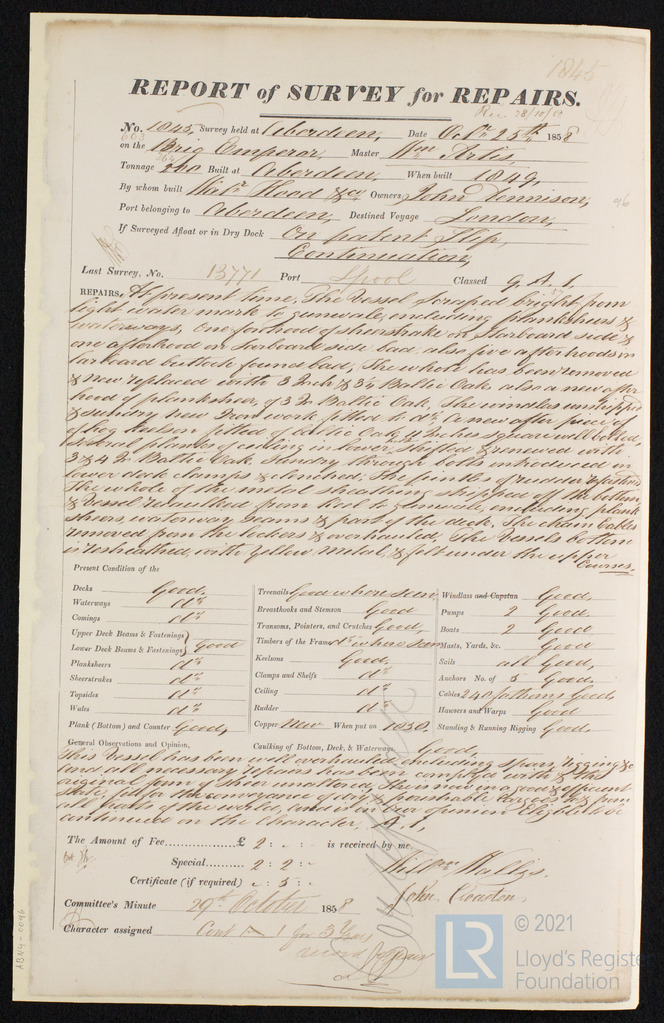 1845
REPORT of SURVEY for REPAIRS.
Rec. 28/10/58
No. 1845, Survey held at Aberdeen, Date Octr 25th, 1858
663
on the Brig Emperor, Master Wm Artis,
264
Tonnage 240 Built at Aberdeen, When built 1849,
By whom built Walr Hood & co Owners John Tennison,
96
Port belonging to Aberdeen, Destined Voyage London,
If Surveyed Afloat or in Dry Dock On patent Slip,
Continuation,
Last Survey, No. 13771 Port Lpool Classed 9, A.1,
REPAIRS, At present time, The Vessel scraped bright from
light water mark to gunwale, including planksheers &
waterways, One forehood of sheerstrake on starboard side &
one afterhood on starboard side bad, also five afterhoods in
larboard buttock found bad, The whole has been removed
& new replaced with 3 Inch & 3½ Baltic Oak, also a new after
hood of planksheer, of 3 In Baltic Oak. The windlass unstripped
& sundry new Iron work fitted to do, A new after piece of
hog keelson fitted of Baltic Oak, Inches square well bolted,
several planks of ceiling in lower hold shifted & renewed with
3 & 4 In Baltic Oak, Sundry through bolts introduced in
lower deck clamps & clinched, The pintles of rudder
The whole of the metal sheathing stripped off the bottom,
& Vessel recaulked from keel to gunwale, including plank
sheers, waterway seams & part of the deck, The chain Cables
removed from the lockers & overhauled, The Vessels bottom
is resheathed, with Yellow Metal, & felt under the upper
Courses,
Present Condition of the
Decks Good,
Waterways do
Comings do
Upper Deck Beams & Fastenings
Lower Deck Beams & Fastenings Good
Planksheers do
Sheerstrakes do
Topsides do
Wales do
Plank (Bottom) and Counter Good,
Treenails Good where seen
Breasthooks and Stemson Good
Transoms, Pointers, and Crutches Good,
Timbers of the Frame do where seen
Keelsons Good,
Clamps and Shelfs do
Ceiling do
Rudder do
Copper New When put on 1858,
Windlass and Capstan Good,
Pumps 2 Good,
Boats 2 Good
Masts, Yards, &c. Good
Sails all Good,
Anchors No. of 5 Good,
Cables 240 fathoms Good,
Hawsers and Warps Good
Standing & Running Rigging Good,
General Observations and Opinion, Caulking of Bottom, Deck, & Waterways Good,
This Vessel has been well overhauled, including spars, rigging &c
and all necessary repairs has been complyed with & the
original form of sheer unaltered, She is now in a good & efficient
state, fit for the conveyance of dry & perishable cargoes to & from
all parts of the world, and is in our opinion Eligible to be
continued on the Character, A.1,
The Amount of Fee............... £ 2 : " : - is received by me,
Special........... 2 : 2 : -
Certificate (if required) " : 5 : -
Willm Wallis,
John Cravston,
Committee's Minute 29th October 1858
Character assigned Cont A 1 for 3 Years
ABN4-0046
LR
© 2021
Lloyd's Register
Foundation